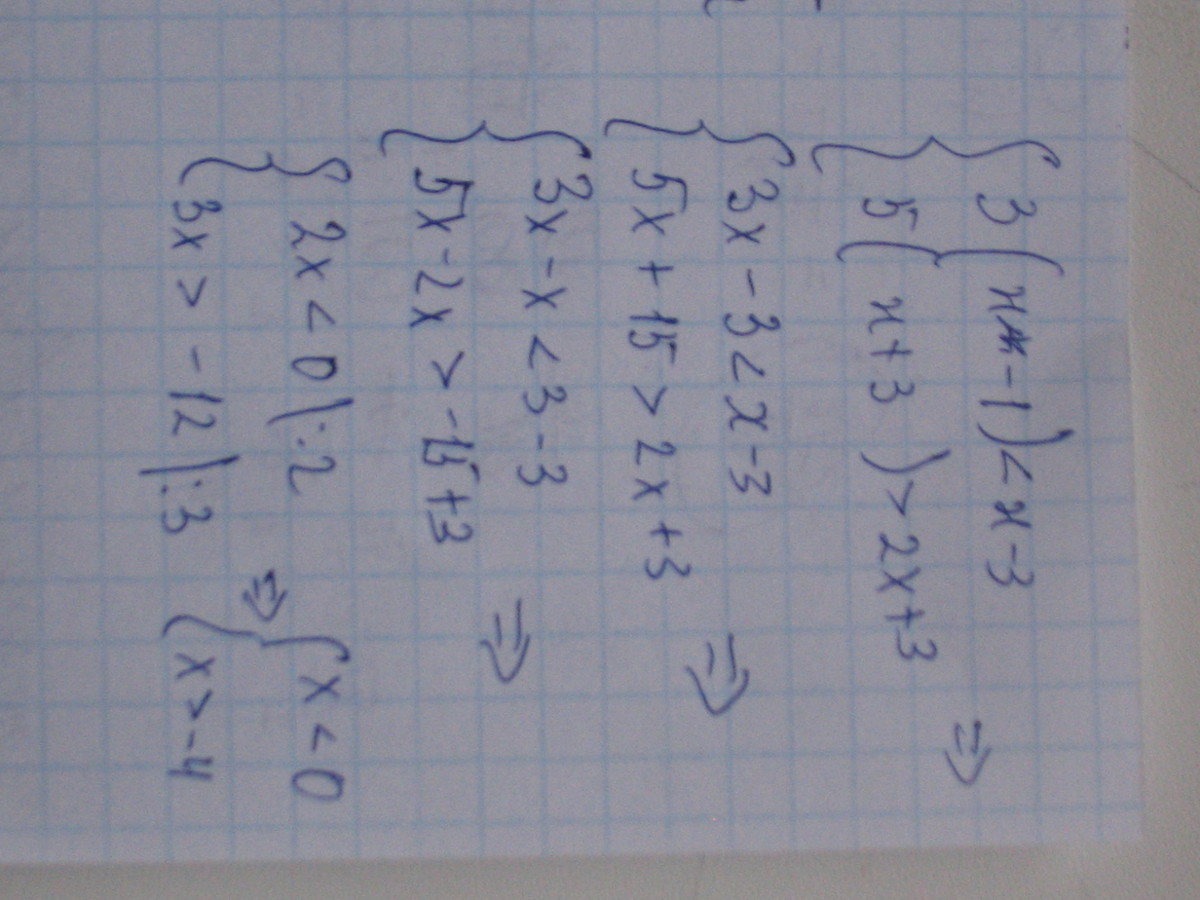 3(x-1)<x-3
5(x+3)>2x+3 ⇒
3x-3<x-3
5x+15>2x+3 ⇒
3x-x<3-3
5x-2x>-15+3 ⇒
2x<0|:2
3x>-12|:3 ⇒
x<0
x>-4